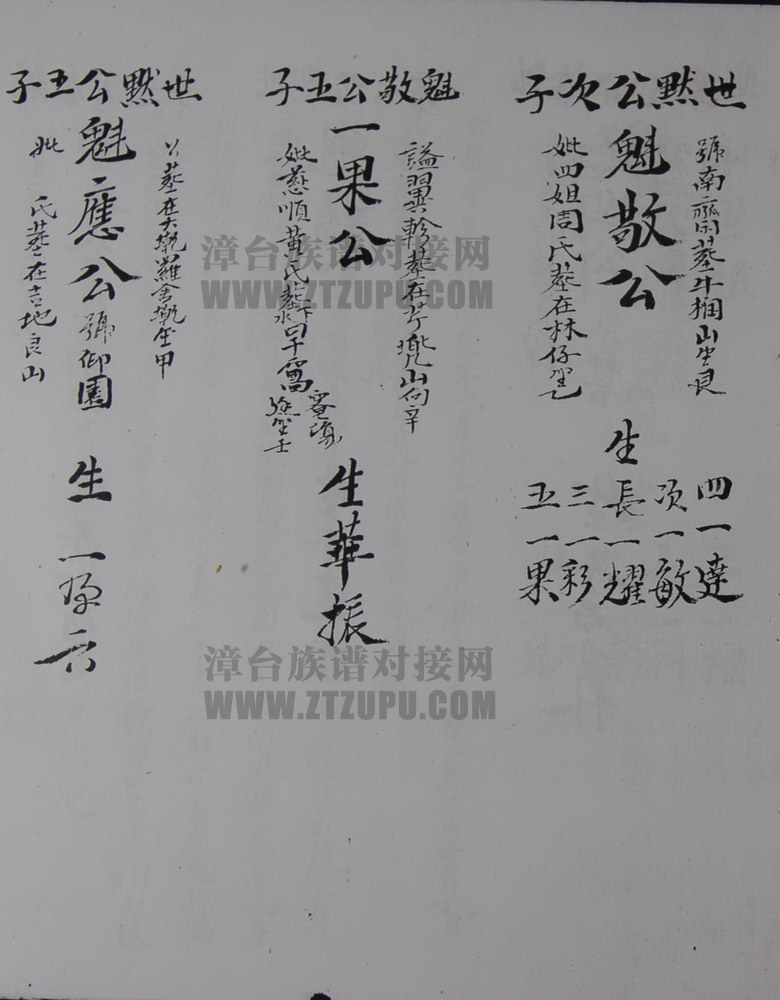 世黙公次子
魁敬公
號南齋墓牛棡山坐艮
妣四姐周氏墓在林仔
生
長一耀
次一敏
三一彩
四一達
五一果
魁敬公五子
一果公
謚翼軫墓在芹 山向辛
妣慈順黃氏墓
坐壬
生華振
世黙公五子
魁應公號仰園
墓在大 羅舍 坐甲
妣 氏墓在吉地良山
生一
漳台族谱对接网
WWW.ZTZUPU.COM
漳台族谱对接网
WWW.ZTZUPU.COM